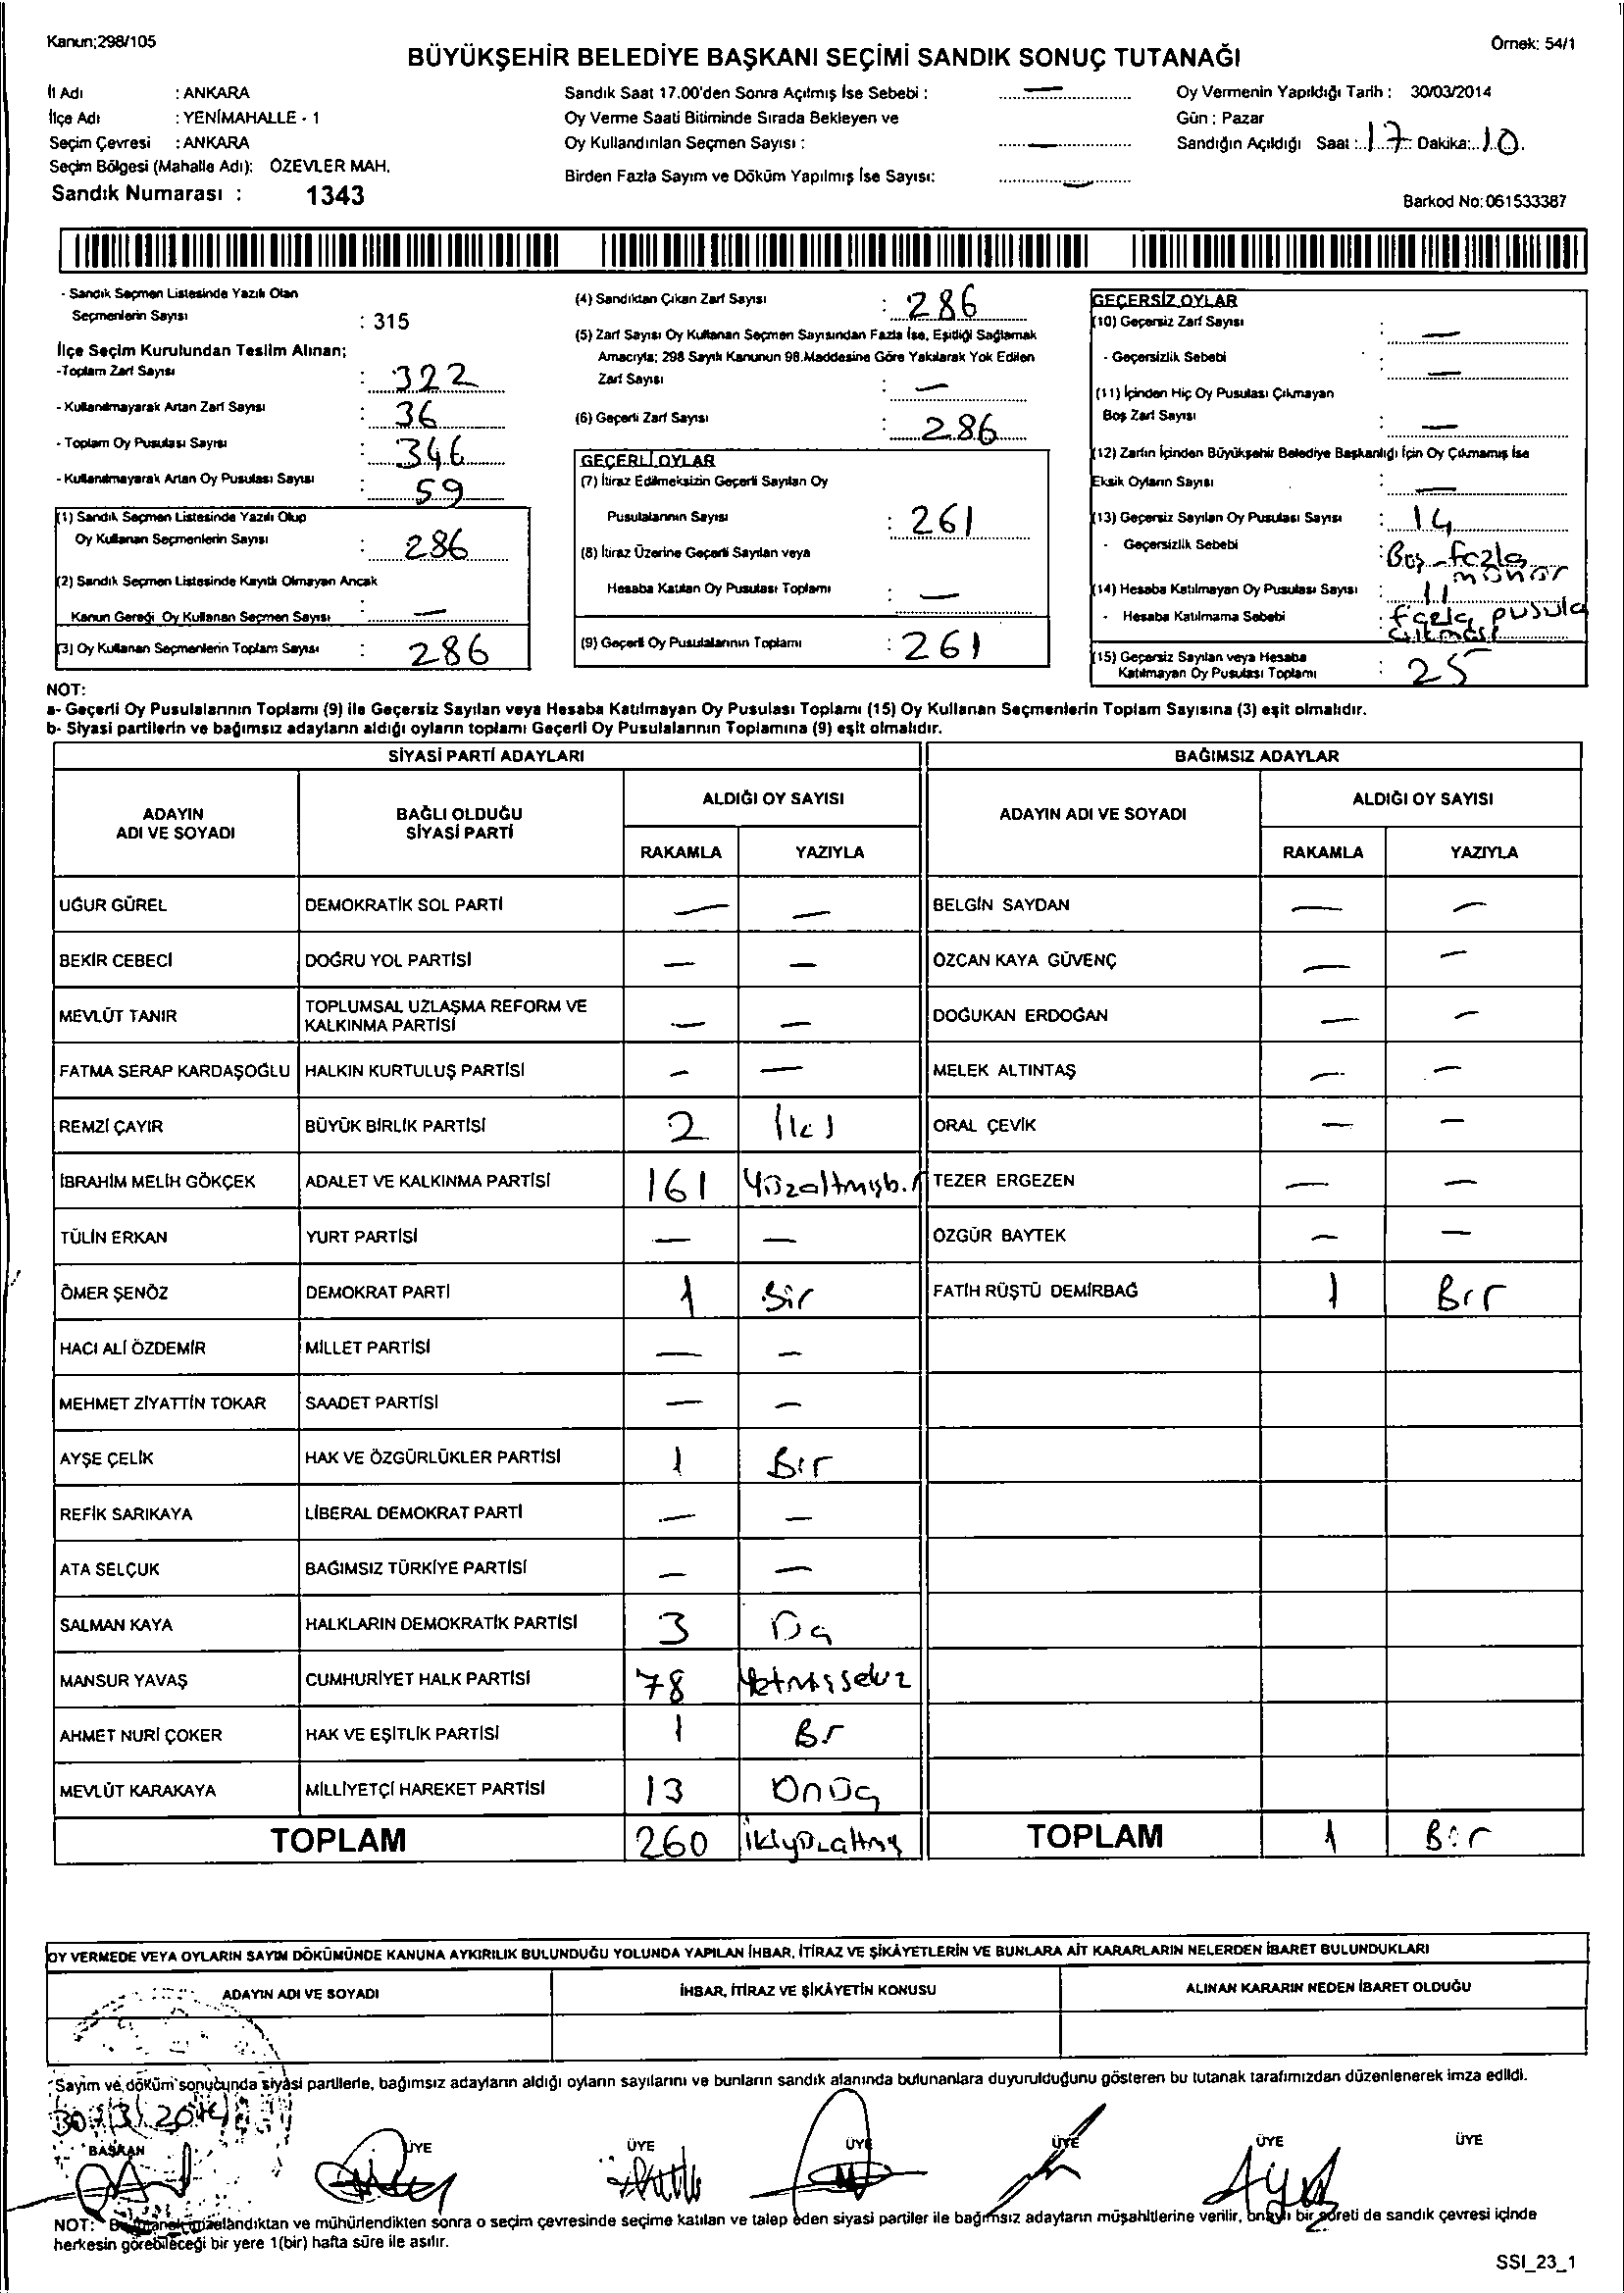 Kanun;298/105
Örnek: 54/1
BÜYÜKŞEHİR BELEDİYE BAŞKANI SEÇİMİ SANDIK SONUÇ TUTANAĞI
İl Adı : ANKARA
İlçe Adı : YENİMAHALLE - 1
Seçim Çevresi : ANKARA
Seçim Bölgesi (Mahalle Adı): ÖZEVLER MAH.
Sandık Numarası : 1343
Sandık Saat 17.00'den Sonra Açılmış İse Sebebi : —
Oy Verme Saati Bitiminde Sırada Bekleyen ve
Oy Kullandırılan Seçmen Sayısı : —
Birden Fazla Sayım ve Döküm Yapılmış İse Sayısı: —
Oy Vermenin Yapıldığı Tarih : 30/03/2014
Gün : Pazar
Sandığın Açıldığı Saat : 17 Dakika: 10
Barkod No:061533387
- Sandık Seçmen Listesinde Yazılı Olan
Seçmenlerin Sayısı : 315
İlçe Seçim Kurulundan Teslim Alınan;
-Toplam Zarf Sayısı : 322
- Kullanılmayarak Artan Zarf Sayısı : 36
- Toplam Oy Pusulası Sayısı : 346
- Kullanılmayarak Artan Oy Pusulası Sayısı : 59
(1) Sandık Seçmen Listesinde Yazılı Olup
Oy Kullanan Seçmenlerin Sayısı : 286
(2) Sandık Seçmen Listesinde Kayıtlı Olmayan Ancak
Kanun Gereği Oy Kullanan Seçmen Sayısı : —
(3) Oy Kullanan Seçmenlerin Toplam Sayısı : 286
(4) Sandıktan Çıkan Zarf Sayısı : 286
(5) Zarf Sayısı Oy Kullanan Seçmen Sayısından Fazla İse, Eşitliği Sağlamak
Amacıyla; 298 Sayılı Kanunun 98.Maddesine Göre Yakılarak Yok Edilen
Zarf Sayısı : —
(6) Geçerli Zarf Sayısı : 286
GEÇERLİ OYLAR
(7) İtiraz Edilmeksizin Geçerli Sayılan Oy
Pusulalarının Sayısı : 261
(8) İtiraz Üzerine Geçerli Sayılan veya
Hesaba Katılan Oy Pusulası Toplamı : —
(9) Geçerli Oy Pusulalarının Toplamı : 261
GEÇERSİZ OYLAR
(10) Geçersiz Zarf Sayısı : —
- Geçersizlik Sebebi : —
(11) İçinden Hiç Oy Pusulası Çıkmayan
Boş Zarf Sayısı : —
(12) Zarfın İçinden Büyükşehir Belediye Başkanlığı İçin Oy Çıkmamış İse
Eksik Oyların Sayısı : —
(13) Geçersiz Sayılan Oy Pusulası Sayısı : 14
- Geçersizlik Sebebi : Boş - fazla
mühür
(14) Hesaba Katılmayan Oy Pusulası Sayısı : 11
- Hesaba Katılmama Sebebi : fazla pusula
çıkması
(15) Geçersiz Sayılan veya Hesaba
Katılmayan Oy Pusulası Toplamı : 25
NOT:
a- Geçerli Oy Pusulalarının Toplamı (9) ile Geçersiz Sayılan veya Hesaba Katılmayan Oy Pusulası Toplamı (15) Oy Kullanan Seçmenlerin Toplam Sayısına (3) eşit olmalıdır.
b- Siyasi partilerin ve bağımsız adayların aldığı oyların toplamı Geçerli Oy Pusulalarının Toplamına (9) eşit olmalıdır.
SİYASİ PARTİ ADAYLARI BAĞIMSIZ ADAYLAR
ADAYIN ADI VE SOYADI BAĞLI OLDUĞU SİYASİ PARTİ ALDIĞI OY SAYISI ADAYIN ADI VE SOYADI ALDIĞI OY SAYISI
RAKAMLA YAZIYLA RAKAMLA YAZIYLA
UĞUR GÜREL DEMOKRATİK SOL PARTİ — — BELGİN SAYDAN — —
BEKİR CEBECİ DOĞRU YOL PARTİSİ — — ÖZCAN KAYA GÜVENÇ — —
MEVLÜT TANIR TOPLUMSAL UZLAŞMA REFORM VE KALKINMA PARTİSİ — — DOĞUKAN ERDOĞAN — —
FATMA SERAP KARDAŞOĞLU HALKIN KURTULUŞ PARTİSİ — — MELEK ALTINTAŞ — —
REMZİ ÇAYIR BÜYÜK BİRLİK PARTİSİ 2 İki ORAL ÇEVİK — —
İBRAHİM MELİH GÖKÇEK ADALET VE KALKINMA PARTİSİ 161 Yüzaltmışb.r TEZER ERGEZEN — —
TÜLİN ERKAN YURT PARTİSİ — — ÖZGÜR BAYTEK — —
ÖMER ŞENÖZ DEMOKRAT PARTİ 1 Bir FATİH RÜŞTÜ DEMİRBAĞ 1 Bir
HACI ALİ ÖZDEMİR MİLLET PARTİSİ — —
MEHMET ZİYATTİN TOKAR SAADET PARTİSİ — —
AYŞE ÇELİK HAK VE ÖZGÜRLÜKLER PARTİSİ 1 Bir
REFİK SARIKAYA LİBERAL DEMOKRAT PARTİ — —
ATA SELÇUK BAĞIMSIZ TÜRKİYE PARTİSİ — —
SALMAN KAYA HALKLARIN DEMOKRATİK PARTİSİ 3 Üç
MANSUR YAVAŞ CUMHURİYET HALK PARTİSİ 78 Yetmişsekiz
AHMET NURİ ÇOKER HAK VE EŞİTLİK PARTİSİ 1 Bir
MEVLÜT KARAKAYA MİLLİYETÇİ HAREKET PARTİSİ 13 Onüç
TOPLAM 260 İkiyüzaltmış TOPLAM 1 Bir
OY VERMEDE VEYA OYLARIN SAYIM DÖKÜMÜNDE KANUNA AYKIRILIK BULUNDUĞU YOLUNDA YAPILAN İHBAR, İTİRAZ VE ŞİKÂYETLERİN VE BUNLARA AİT KARARLARIN NELERDEN İBARET BULUNDUKLARI
ADAYIN ADI VE SOYADI İHBAR, İTİRAZ VE ŞİKÂYETİN KONUSU ALINAN KARARIN NEDEN İBARET OLDUĞU
Sayım ve döküm sonucunda siyasi partilerle, bağımsız adayların aldığı oyların sayılarını ve bunların sandık alanında bulunanlara duyurulduğunu gösteren bu tutanak tarafımızdan düzenlenerek imza edildi.
30/3/2014
BAŞKAN ÜYE ÜYE ÜYE ÜYE ÜYE ÜYE
NOT: Bu tutanak imzalandıktan ve mühürlendikten sonra o seçim çevresinde seçime katılan ve talep eden siyasi partiler ile bağımsız adayların müşahitlerine verilir, onaylı bir sureti de sandık çevresi içinde
herkesin görebileceği bir yere 1(bir) hafta süre ile asılır.
SSI_23_1